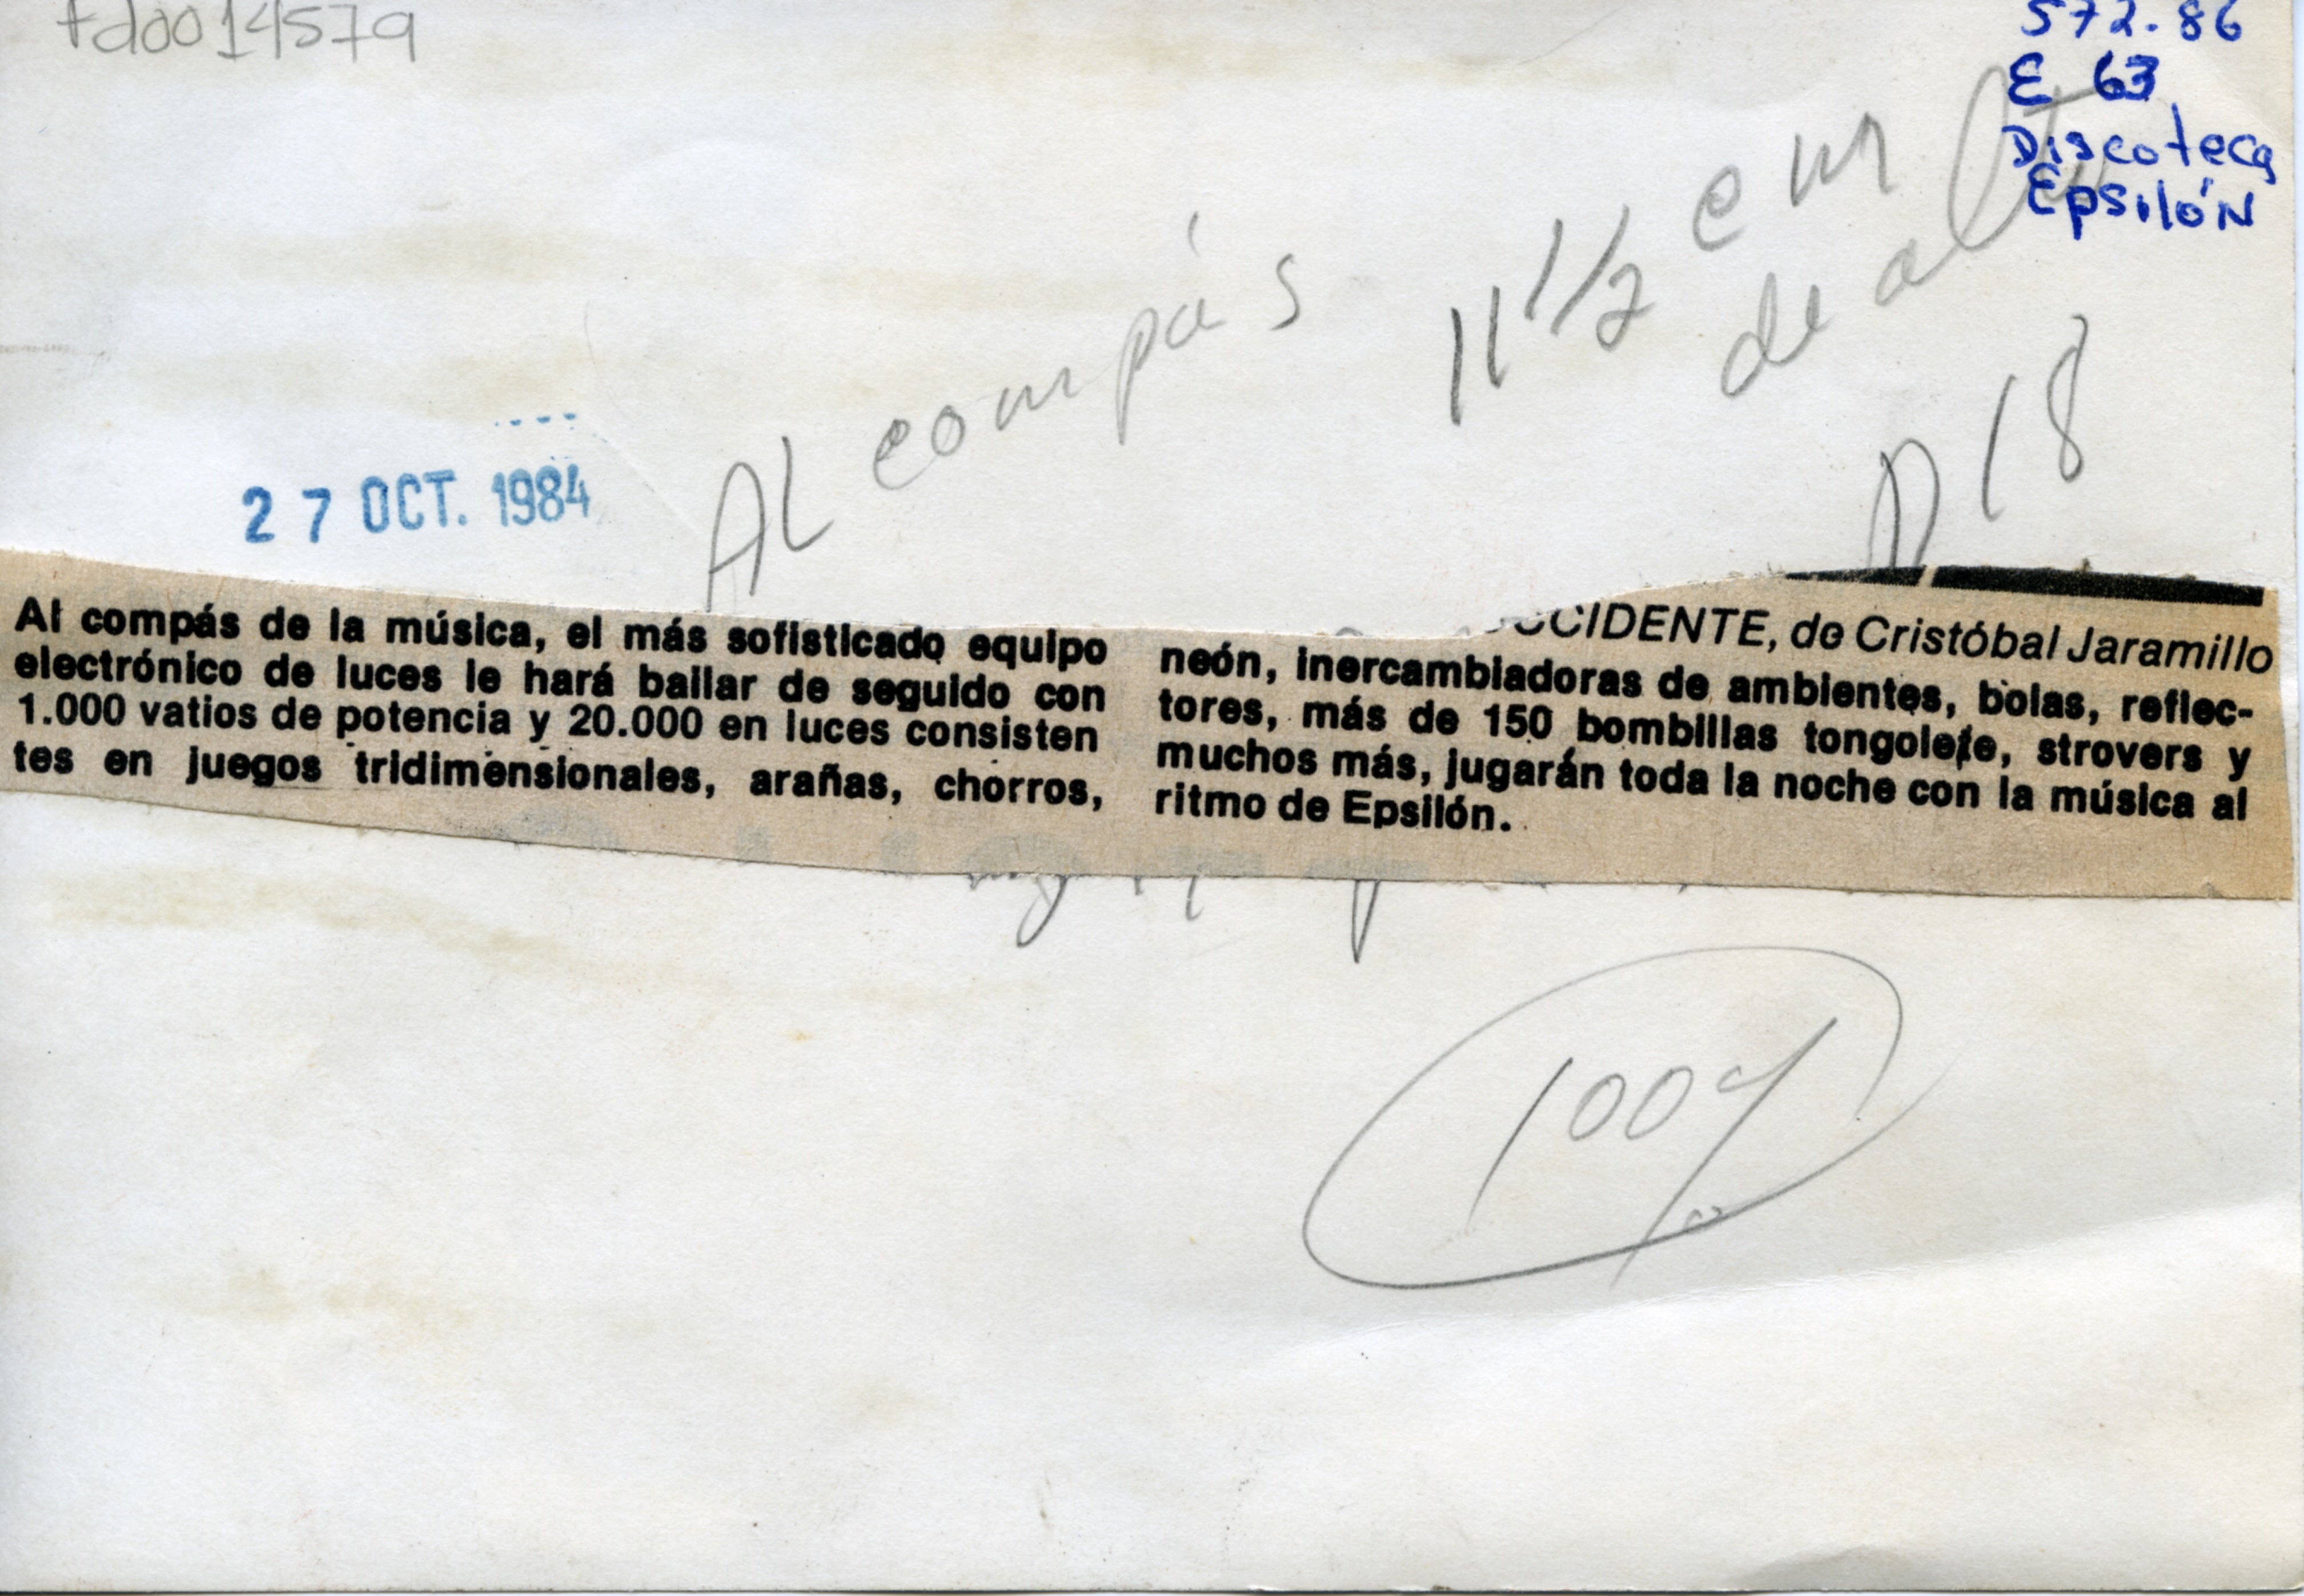 fd0014579
572.86
E 63
Discoteca
Epsilón
11 1/2 em
de alto
Al compás
D 18
27 OCT. 1984
CCIDENTE, de Cristóbal Jaramillo
Al compás de la música, el más sofisticado equipo
electrónico de luces le hará bailar de seguido con
1.000 vatios de potencia y 20.000 en luces consisten
tes en juegos tridimensionales, arañas, chorros,
neón, inercambiadoras de ambientes, bolas, reflec-
tores, más de 150 bombillas tongolete, strovers y
muchos más, jugarán toda la noche con la música al
ritmo de Epsilón.